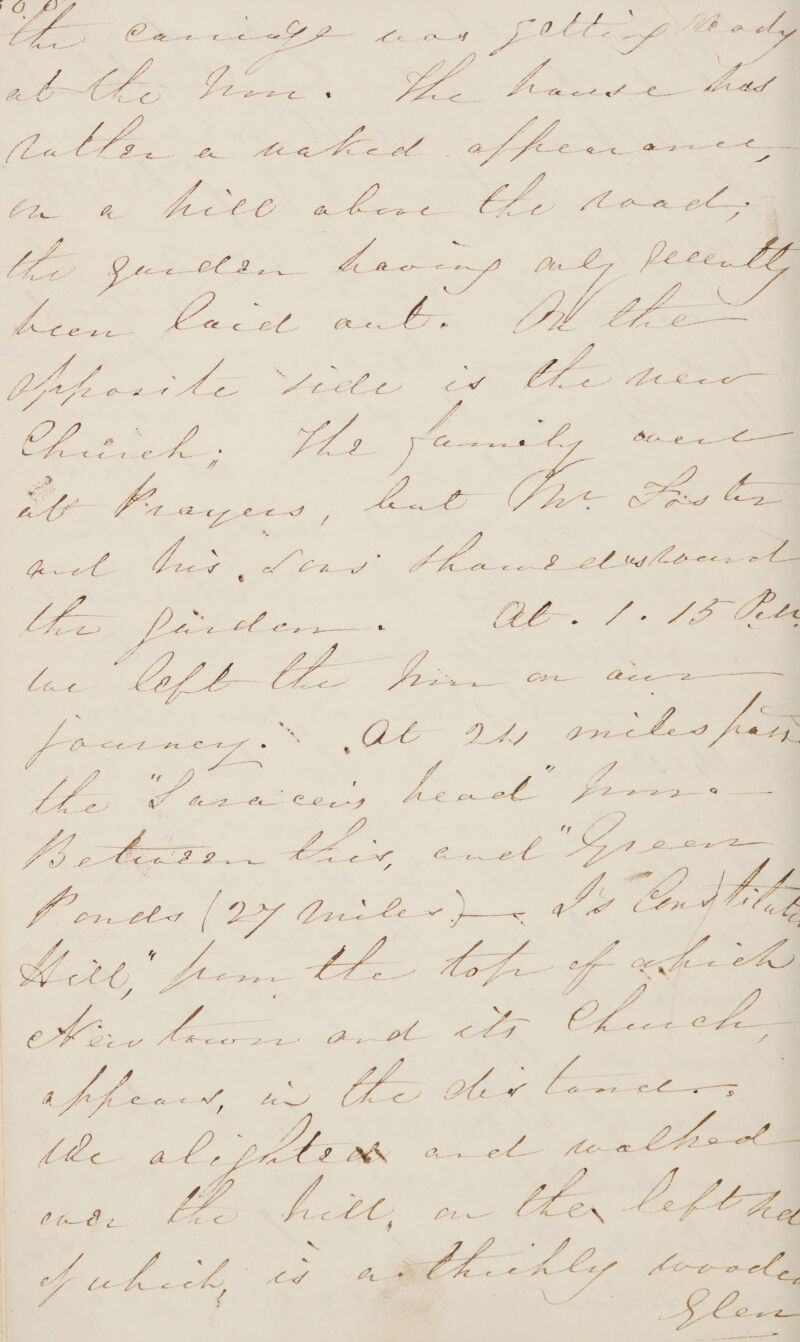 the carriage was getting ready
at the Inn. The house has
rather a naked appearance,
on a hill above the road;
the garden having only recently
been laid out. On the
opposite side is the new
Church; The family were
at Prayers, but Mr. Foster
and his Sons showed us round
the garden. At . 1 . 15 P.M.
we left the Inn on our
journey. At 24 miles pass
the "Saracens head" Inn.
Between this, and "Green
Ponds (27 Miles) Is "Constitution
Hill," from the top of which
New town and its Church,
appears, in the distance.
We alighted and walked
over the hill, on the left hd
of which, is a thickly wooded
Glen